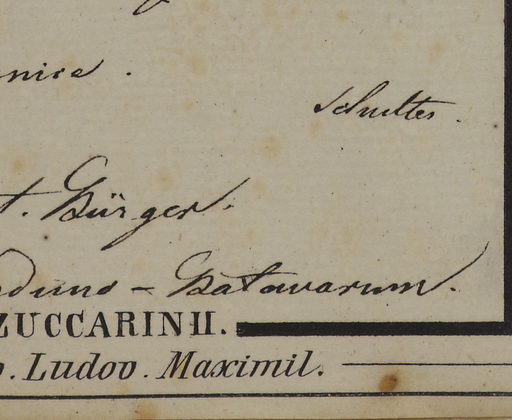 nica .
Schultes .
t. Bürger.
Lugduno - Batavarum.
ZUCCARINII.
o. Ludov. Maximil.